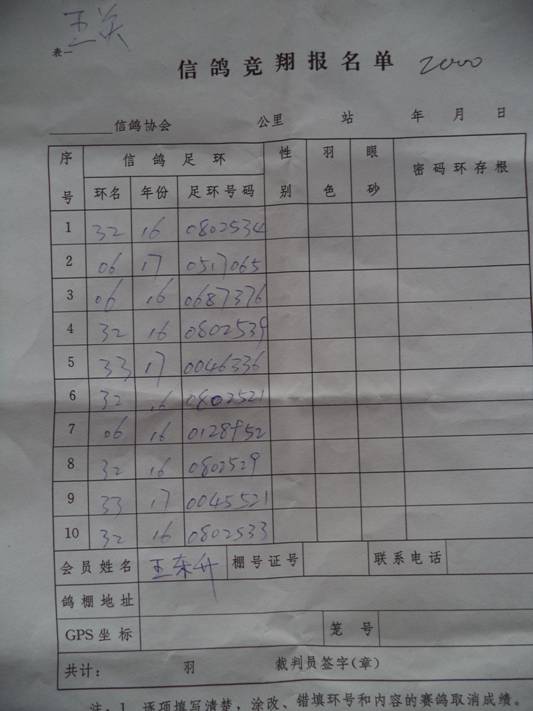 王关
表一
信鸽竞翔报名单 2000
信鸽协会 公里 站 年 月 日
序号 信鸽足环 性别 羽色 眼砂 密码环存根
环名 年份 足环号码
1 32 16 0802534
2 06 17 0517065
3 06 16 0687376
4 32 16 0802539
5 33 17 0046336
6 32 16 0802521
7 06 16 0128952
8 32 16 0802529
9 33 17 0045521
10 32 16 0802533
会员姓名 王东升 棚号证号 联系电话
鸽棚地址
GPS坐标 笼号
共计： 羽 裁判员签字(章)
注：1. 逐项填写清楚，涂改、错填环号和内容的赛鸽取消成绩。